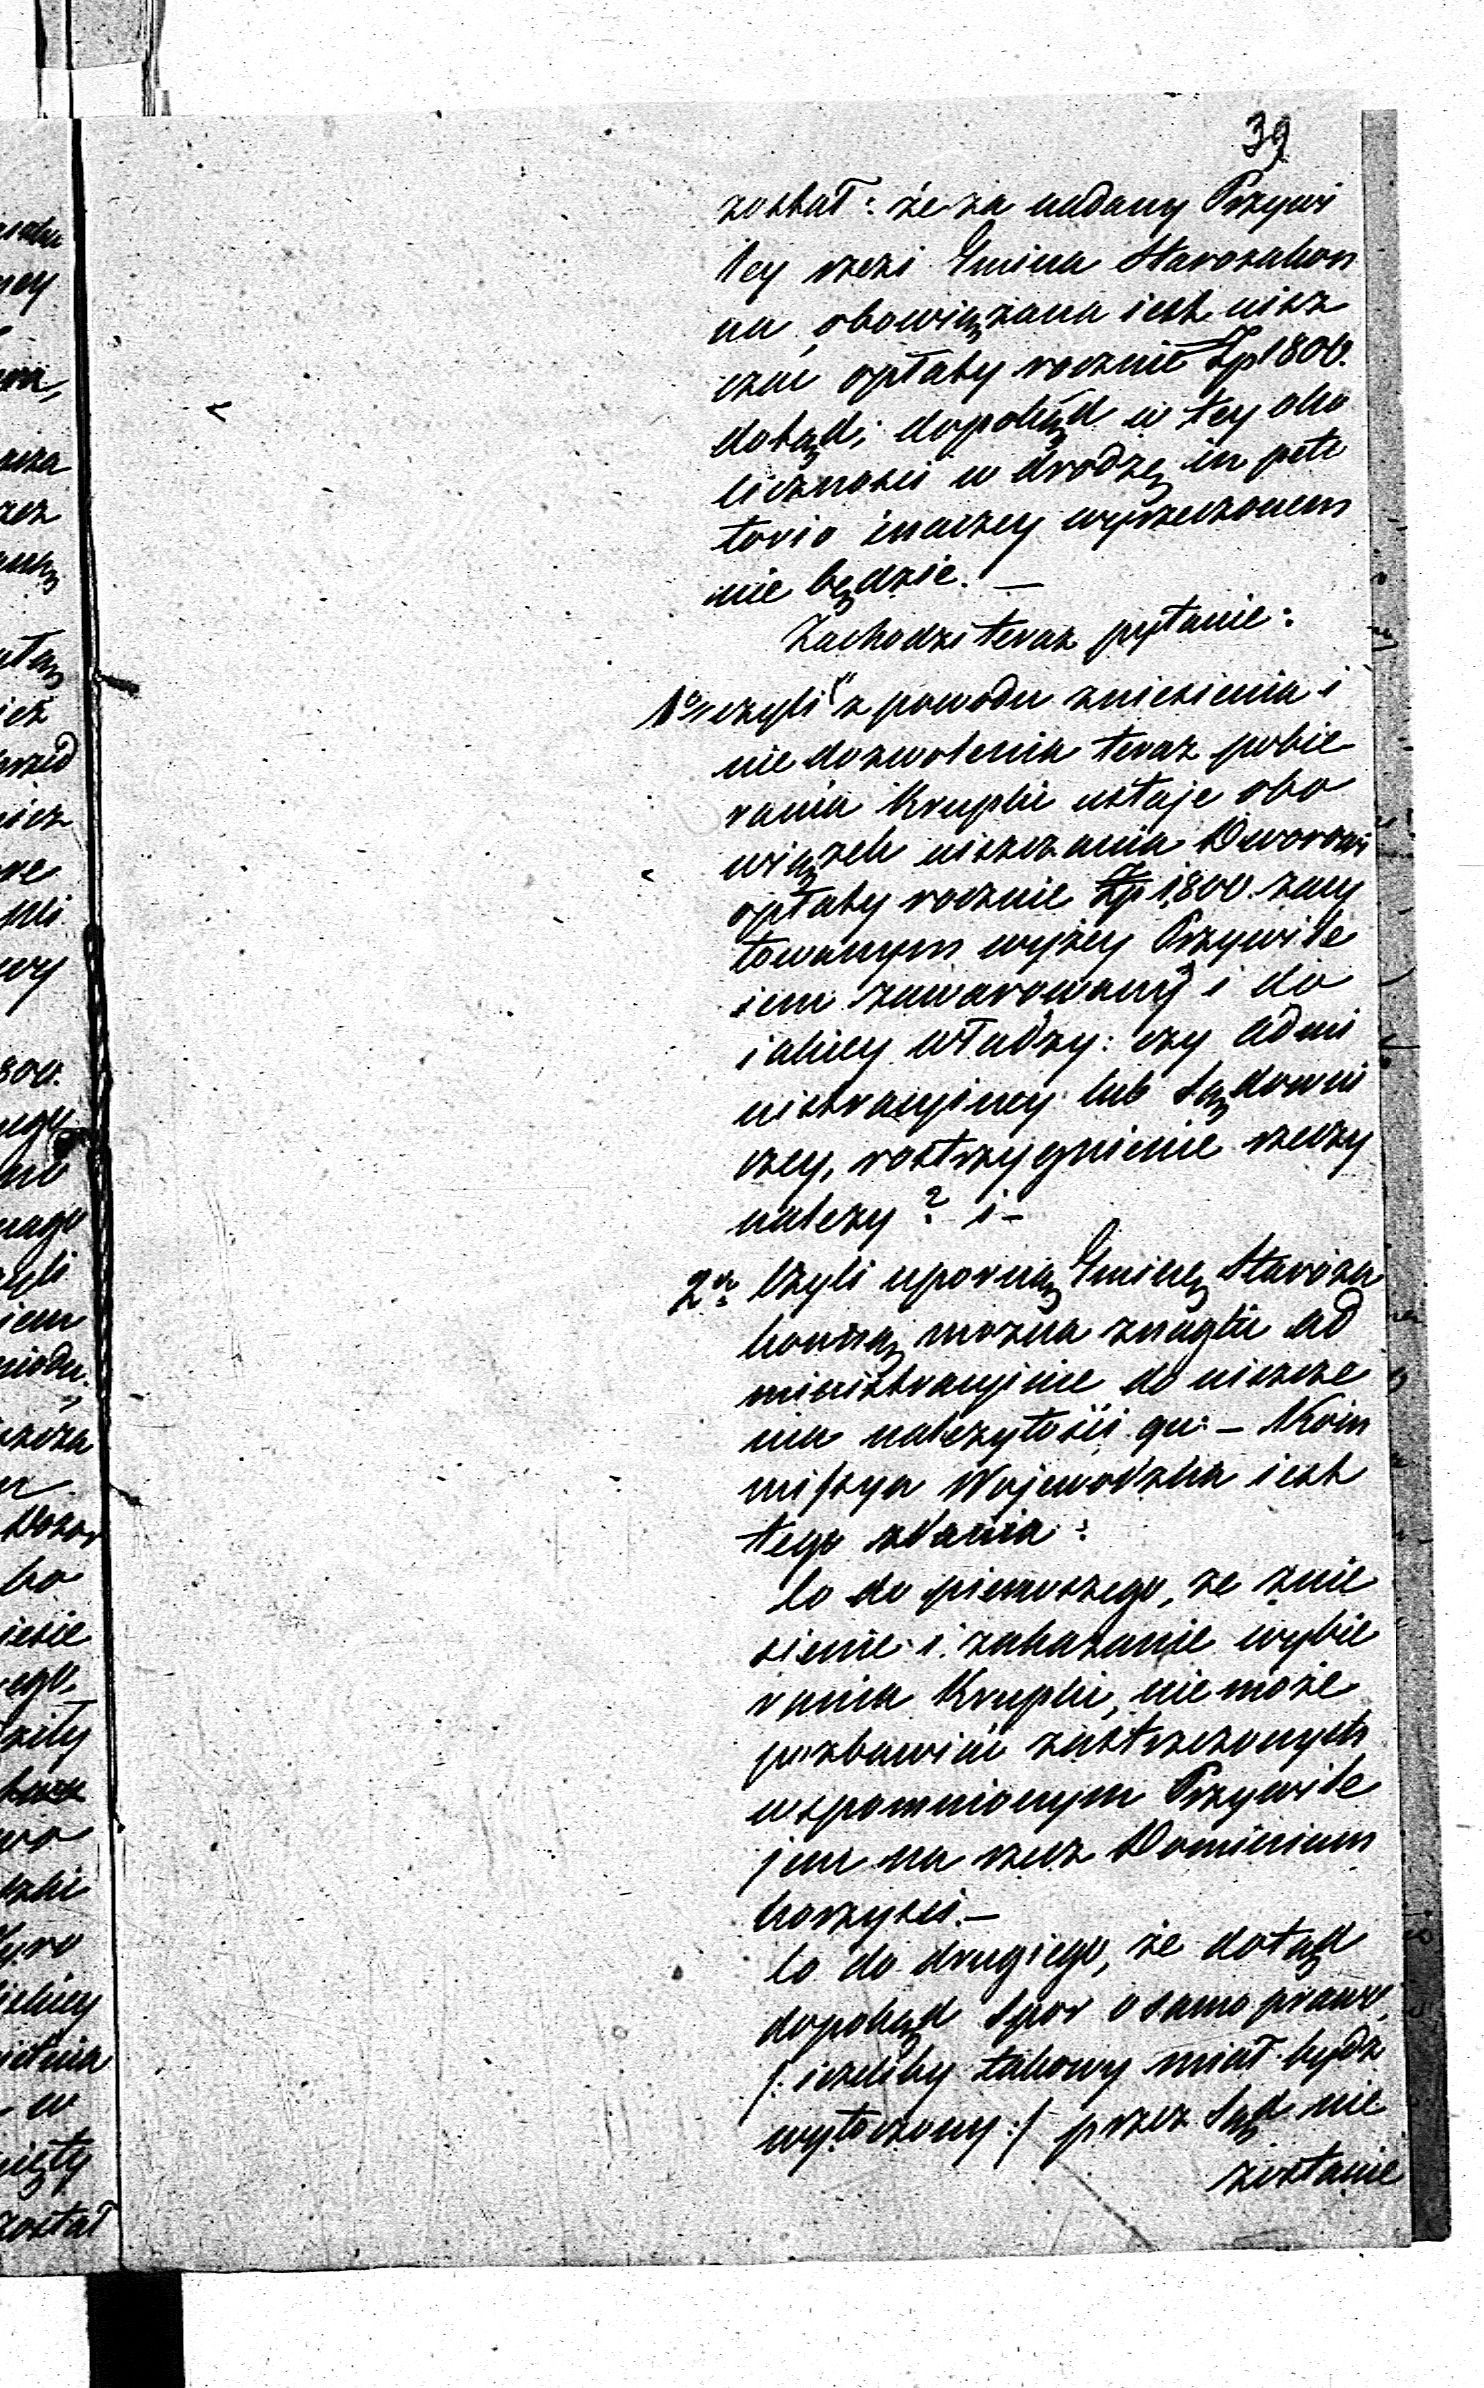 39
został: że za nadany Przywi
ley rzezi Gmina Starozakon
na, obowiązana iest uisz
czać opłaty rocznie Zp 1800.
dotąd, dopokąd w tey oko
liczności w drodze in peti
torio inaczey wyrzeczonem
nie będzie. —
Zachodzi teraz pytanie:
1o czyli z powodu zniesienia i
nie dozwolenia teraz pobie
rania Krupki ustaje obo
wiązek uiszczania Dworowi
opłaty rocznie Zp 1,800. zacy
towanym wyżey Przywile
iem zawarowany i do
iakiey władzy: czy admi
nistracyiney lub Sądowni
czey, rostrzygnienie rzeczy
należy? i —
2o Czyli uporną Gminę Staroza
konną można znaglić ad
ministracyinie do uiszcze
nia należytości qu: — Kom
missya Wojewodzka iest
tego zdania:
Co do pierwszego, że znie
sienie i zakazanie wybie
rania Krupki, nie może
pozbawiać zastrzeżonych
wspomnionym Przywile
jem na rzecz Dominium
korzyści. —
Co do drugiego, że dotąd
dopokąd Spor o samo prawo,
/: ieżeliby takowy miał bydź
wytoczony :/ przez Sąd nie
zostanie